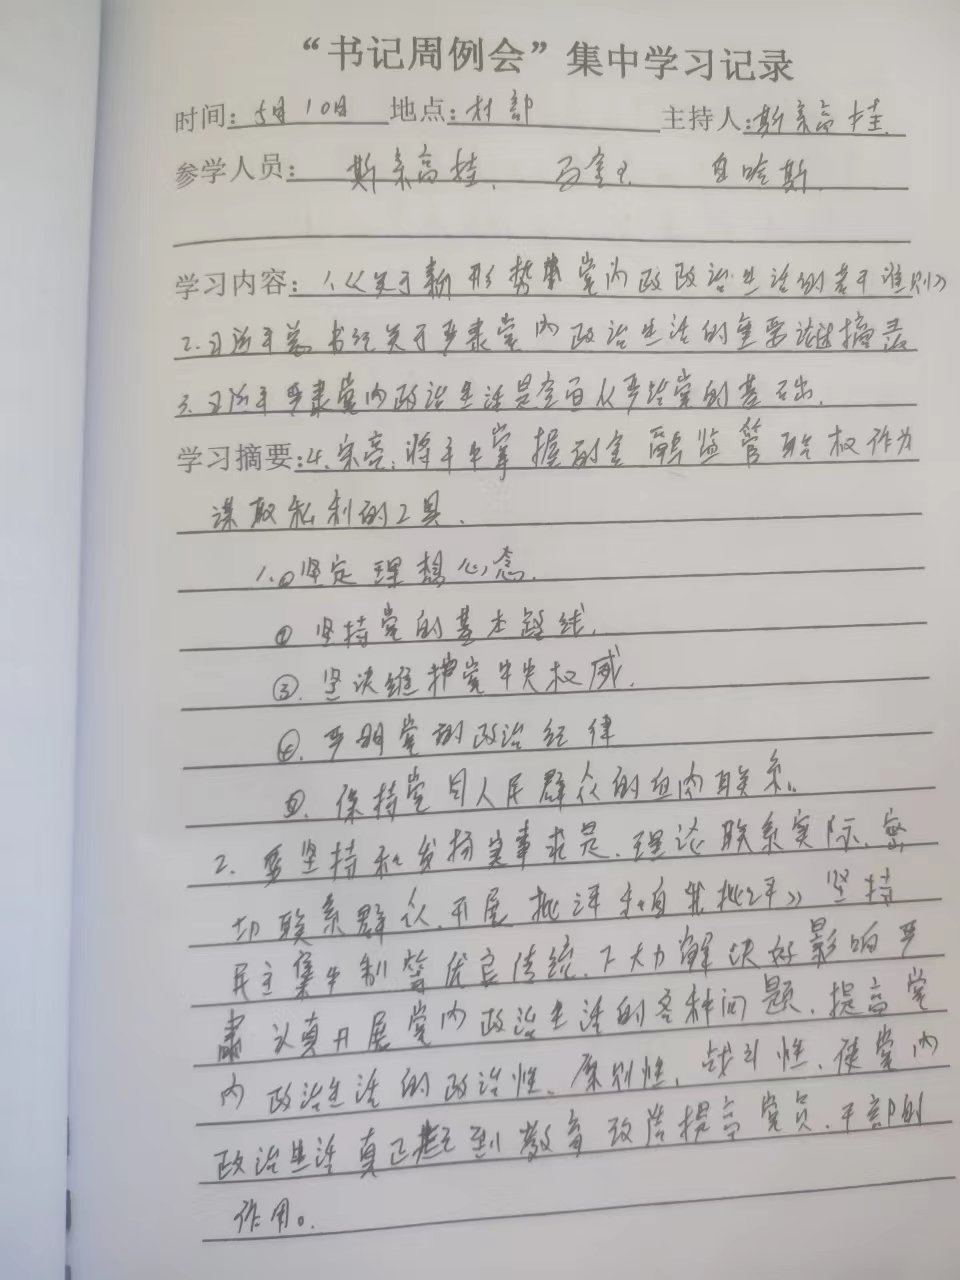 “书记周例会”集中学习记录
时间:5月10日 地点:村部 主持人:斯亲高娃.
参学人员: 斯亲高娃. 白哈斯.
学习内容:1.《关于新形势党内政政治生活的若干准则》
2.习近平总书纪关于严肃党内政治生活的重要论述摘录
3.习近平严肃党内政治生活是全面从严治党的基础.
学习摘要:4.宋亮:将手中掌握的金融监管职权作为
谋取私利的工具.
1.①坚定理想心念.
② 坚持党的基本路线.
③.坚决维护党中央权威.
④.严明党的政治纪律
⑤.保持党同人民群众的血肉联系.
2.要坚持和发扬实事求是.理论联系实际.密
切联系群众.开展批评和《自我批评》坚持
民主集中制等优良传统.下大力解决好影响严
肃认真开展党内政治生活的各种问题.提高党
内政治生活的政治性.原则性.战斗性.使党内
政治生活真正起到教育改造提高党员.干部的
作用。